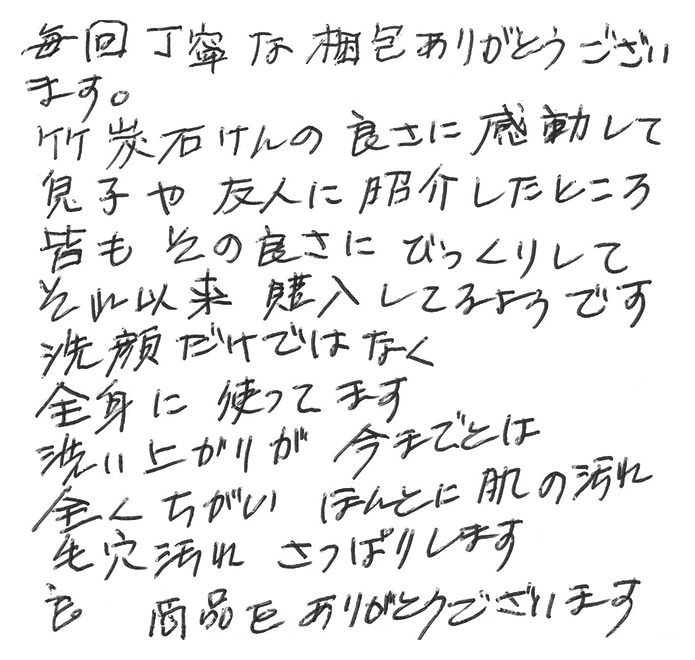 毎回丁寧な梱包ありがとうござい
ます。
竹炭石けんの良さに感動して
息子や友人に紹介したところ
皆もその良さにびっくりして
それ以来購入してるようです
洗顔だけではなく
全身に使ってます
洗い上がりが今までとは
全くちがいほんとに肌の汚れ
毛穴汚れさっぱりします
商品をありがとうございます